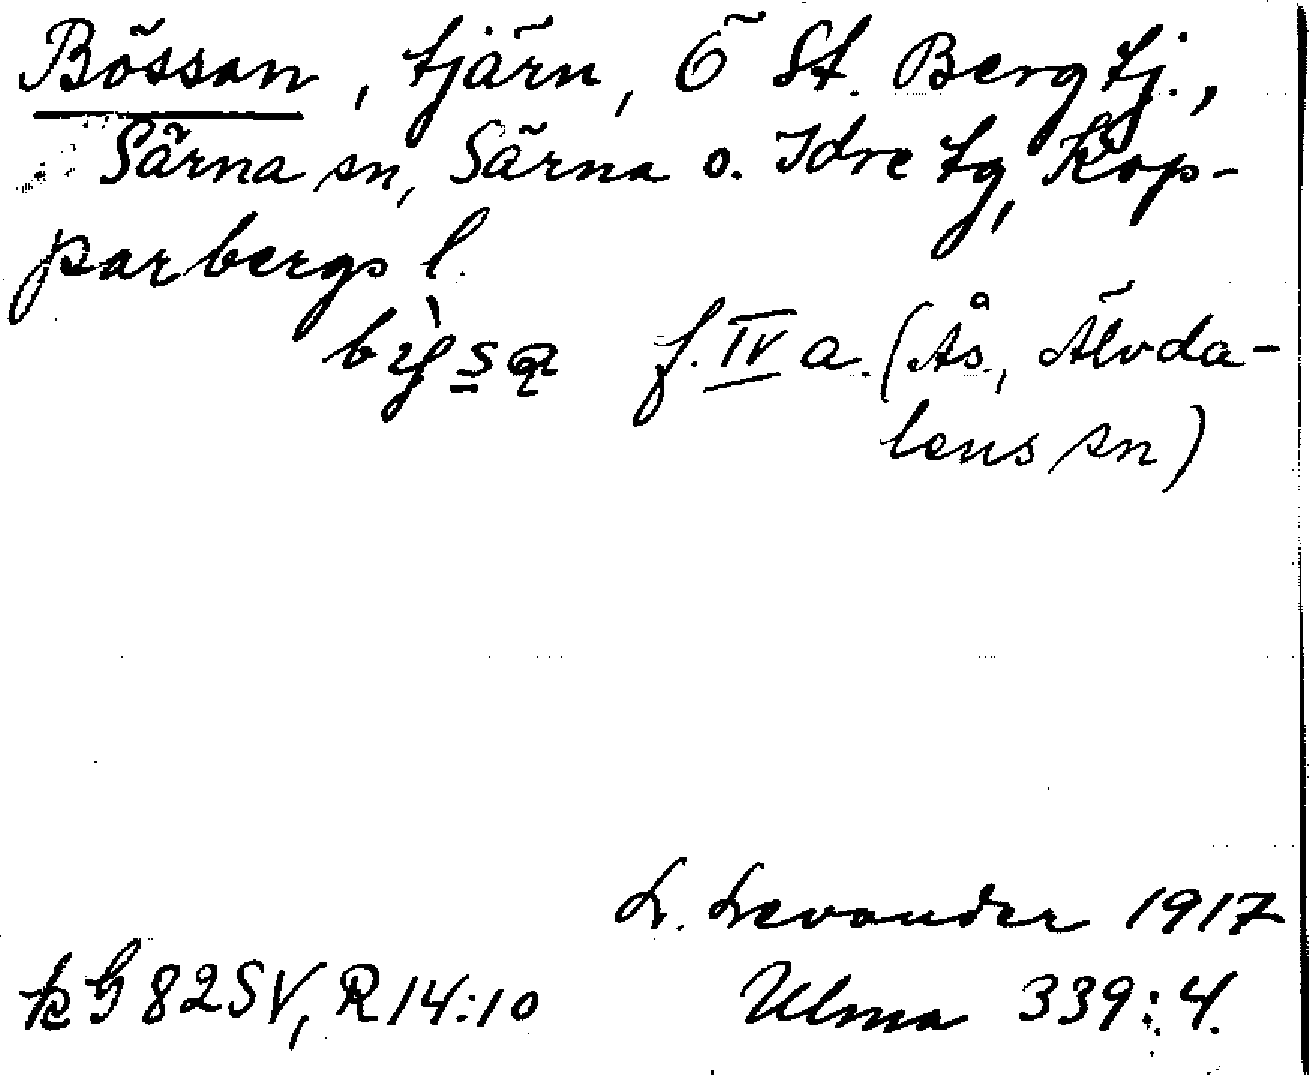 Bössan, tjärn, Ö St. Bergtj.,
Särna sn, Särna o. Idre tg, Kop-
parbergs l.
f. IV a. (Ås, Älvda-
lens sn)
L. Levander 1917
k G 82SV, R 14:10 Ulma 339:4.